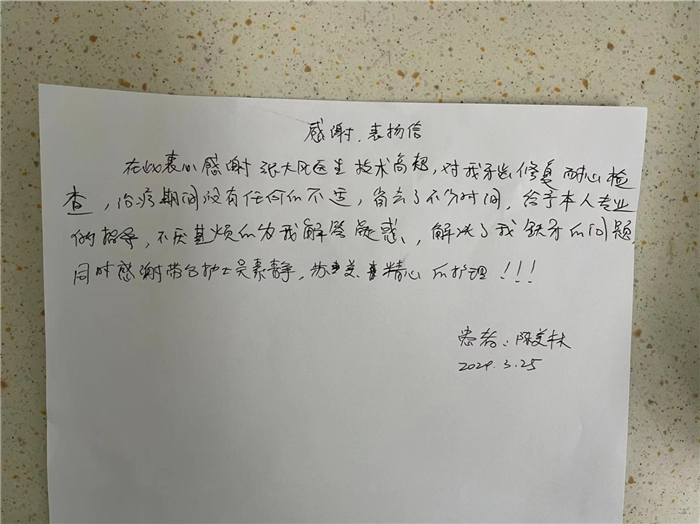 感谢.表扬信
在此衷心感谢张大风医生技术高超,对我牙齿修复耐心检
查,治疗期间没有任何的不适,省去了不少时间,给予本人专业
的指导,不厌其烦的为我解答疑惑、,解决了我缺牙的问题,
同时感谢带台护士吴素静,苏美精心的护理!!!
患者:陈美林
2024.3.25